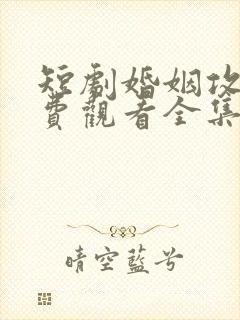 短劇婚姻攻
費觀看全集
晴空藍兮